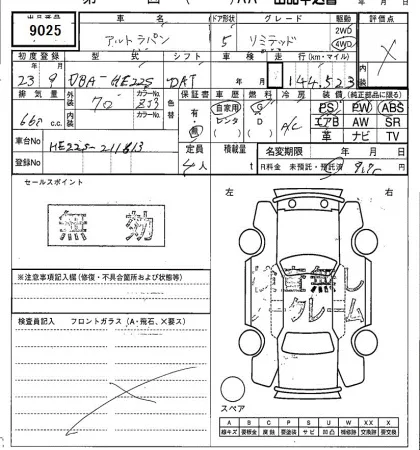 出品番号 車 名 ドア形状 グレード 駆動 評価点
9025 アルトラパン 5 リミテッド 2WD 4WD ×
初度登録 型 式 シフト 車 検 走行(km・マイル) 内装
23年 9月 DBA-HE22S DAT 年 月 144,523
排気量 外装 カラーNo. 色替 保証書 車歴 燃料 冷房 装備(純正部品に限る)
660 c.c. 内装 カラーNo. ZJ3 有・無 自家用 レンタ G D A/C PS PW ABS
エアB AW SR
革 ナビ TV
車台No HE22S-211813 定員 4人 積載量 t 名変期限 年 月 日
登録No R料金 未預託・預託済
セールスポイント 左 右
無 効
ノークレーム
※注意事項記入欄(修復・不具合箇所および状態等)
検査員記入 フロントガラス(A・飛石、X要ス)
スペア
A B C P S U W X XX
線キズ 要板金 腐蝕 要塗装 サビ 凹凸 補修跡 交換跡 要交換